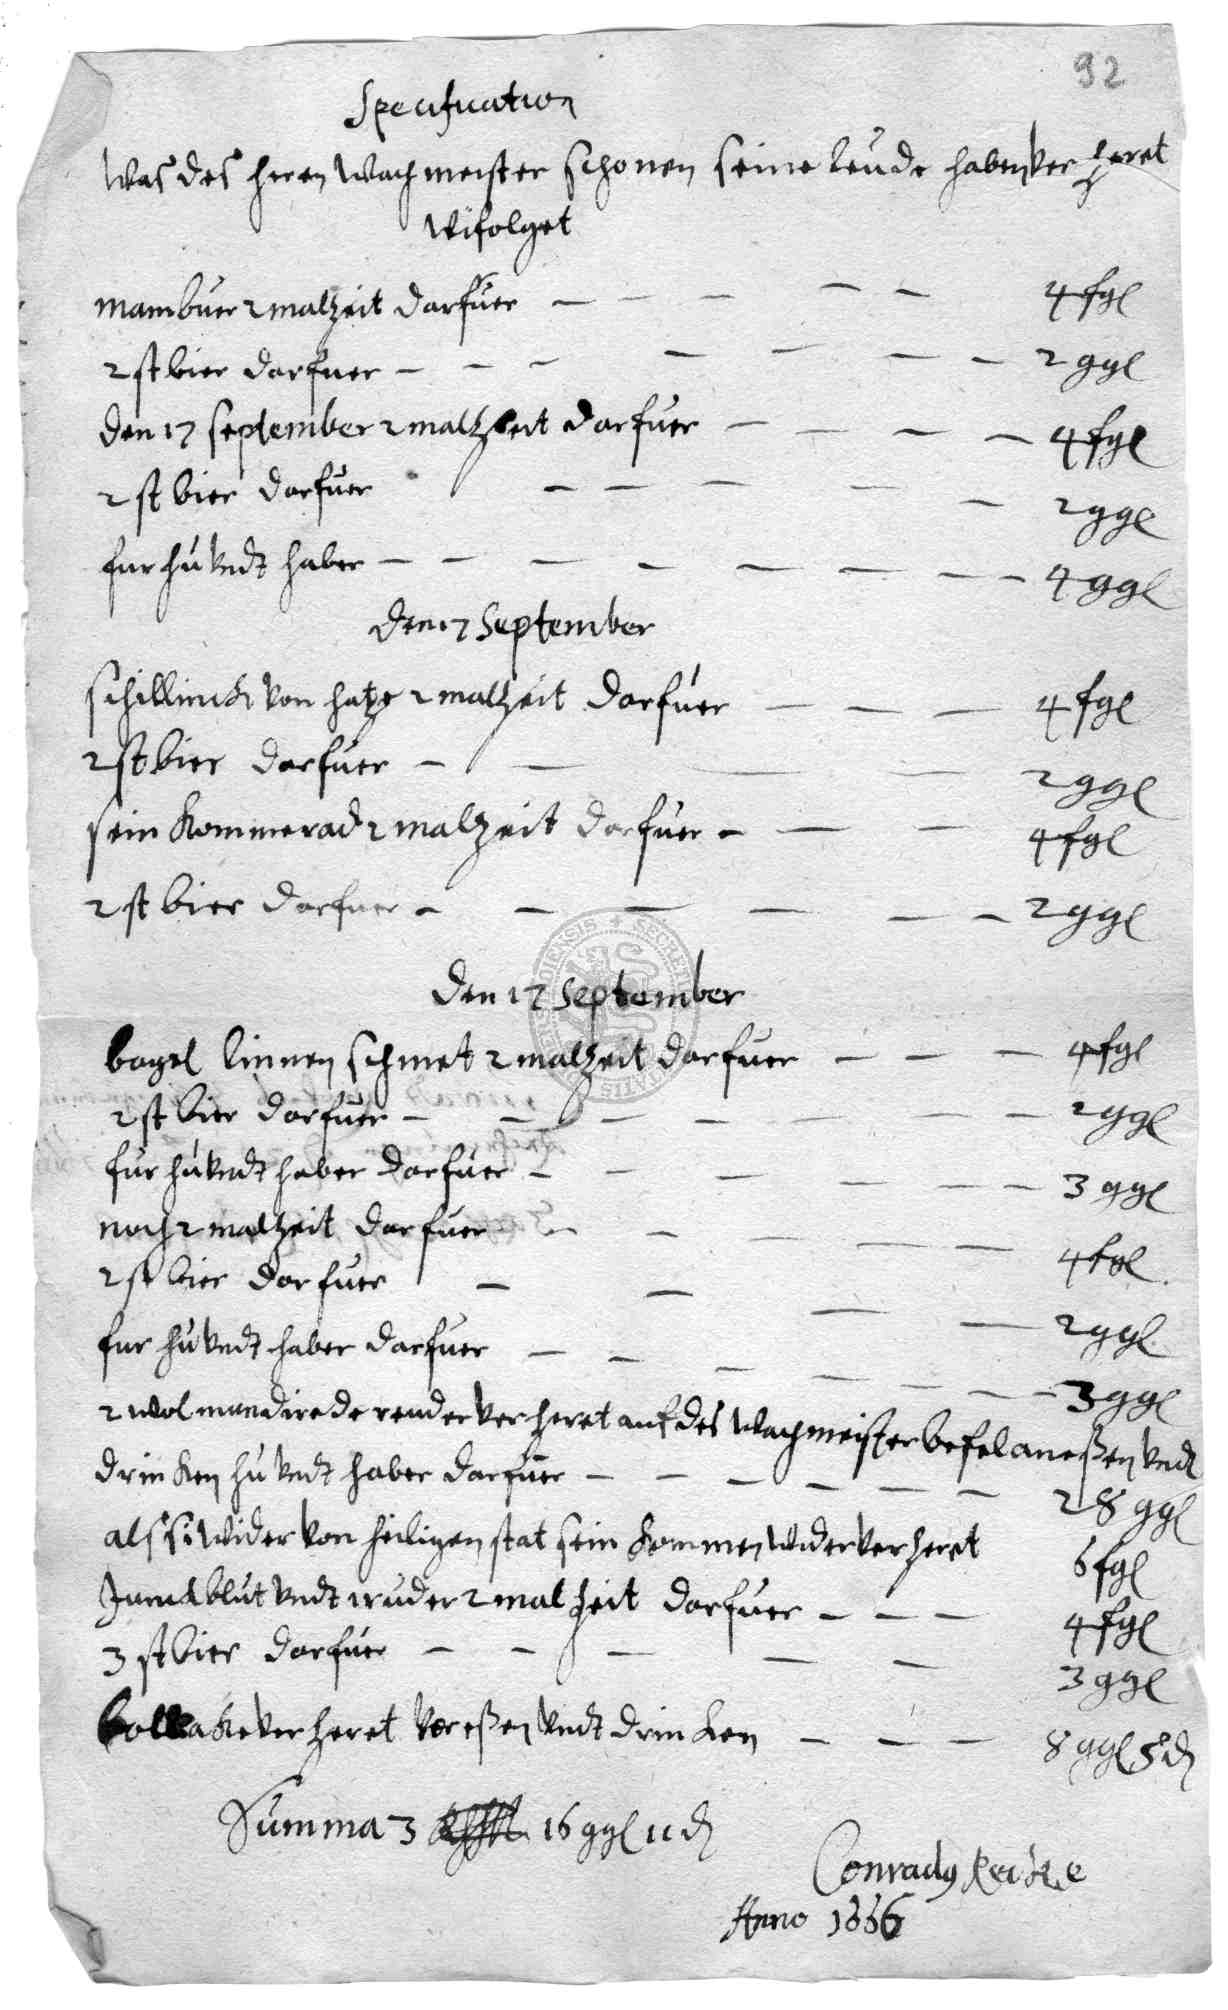 92
Specification
Was des heren Wachmeister schonen seine leude haben ver heret
wifolget
mambuer 2 malzeit darfuer — — — — — 4 fgl
2 st bier darfuer — — — — — — — 2 ggl
den 17 september 2 malzeit darfuer — — — — 4 fgl
2 st bier darfuer — — — — — 2 ggl
fur hu vndt haber — — — — — — — — 4 ggl
den 17 September
schillinck von hatze 2 malzeit darfuer — — — 4 fgl
2 st bier darfuer — — — — 2 ggl
sein kommerad 2 malzeit darfuer — — — 4 fgl
2 st bier darfuer — — — — — — 2 ggl
den 17 September
bagel linnen schmet 2 malzeit darfuer — — — 4 fgl
2 st bier darfuer — — — — — — — 2 ggl
fur hu vndt haber darfuer — — — — — — 3 ggl
noch 2 malzeit darfuer — — — — — 4 fgl
2 st bier darfuer — — — — 2 ggl
fur hu vndt haber darfuer — — — — — — — 3 ggl
2 wol mundirede render ver heret auf des Wachmeister befel an eßen vndt
drincken hu vndt haber darfuer — — — — — — 28 ggl
als si wider von heiligen stat sein kommen wider ver heret 6 fgl
vndt 2 malzeit darfuer — — — 4 fgl
3 st bier darfuer — — — — — 3 ggl
ver heret vor eßen vndt drincken — — — 8 ggl 5 d
Summa 3 16 ggl 11 d
Conradus
Anno 1666